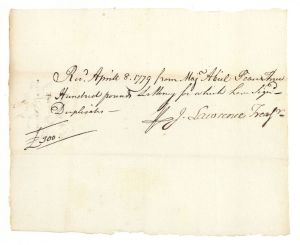 Rec.d April 8. 1779 from Maj.r Abiel Pease Three
Hundred pounds L Mony for which have Sign.d
Duplicates —
£300.
J. Lawrence Treas.r